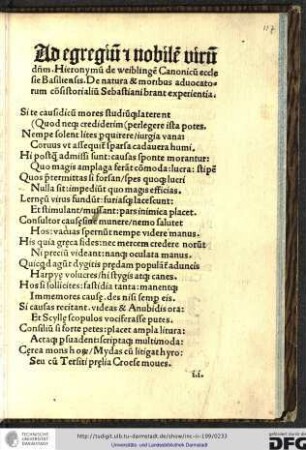 117
Ad egregiū ⁊ nobilē virū
dn̄m. Hieronymū de weiblingē Canonicū eccle
sie Basiliensis. De natura & moribus aduocato-
rum cōsistorialiū Sebastiani brant experientia.
Si te causidicū mores studiūq̢ laterent
(Quod neq̢ crediderim) perlegere ista potes.
Nempe solent lites p̱quirere/iurgia vana:
Coruus vt assequit̃ sparsa cadauera humi.
Hi postq̄ admissi sunt: causas sponte morantur:
Quo magis amplaga ferāt cōmoda: lucra: stipē
Quos p̄termittas si forsan/spes quoq̢ lucri
Nulla sit: impediūt quo magis efficias.
Lernęū virus fundūt: furiasq̢ lacescunt:
Et stimulant/mussant: pars inimica placet.
Consultor causę sine munere/nemo salutet
Hos: vaduas spernūt nempe videre manus.
His quia gręca fides: nec mercem credere norūt
Ni preciū videant: nanq̢ oculata manus.
Quicq̄d agūt dygitis prędam populāt̃ aduncis
Harpyę volucres/hi stygis atq̢ canes.
Hos si sollicites: fastidia tanta: manentq̢
Immemores causę. des nisi semp eis.
Si causas recitant. videas & Anubidi ora:
Et Scyllę scopulos vociferasse putes.
Consiliū si forte petes: placet ampla litura:
Actaq̢ p̱suadent: scriptaq̢ multimoda:
Cęrea mons hoc/Mydas cū litigat hyro:
Seu cū Tersiti prelia Croese moues.
TECHNISCHE
UNIVERSITÄT
DARMSTADT
http://tudigit.ulb.tu-darmstadt.de/show/inc-iv-199/0233
Universitäts- und Landesbibliothek Darmstadt
gefördert durch die
DFG